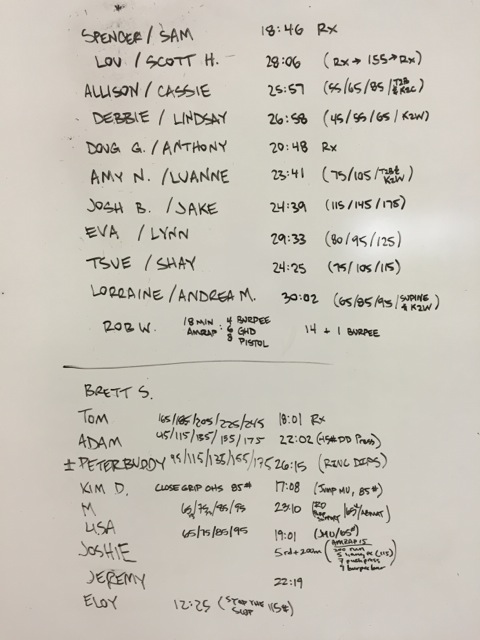 SPENCER / SAM 18:46 Rx
LOU / SCOTT H. 28:06 (Rx → 155 → Rx)
ALLISON / CASSIE 25:57 (55/65/85/T2B & K2C)
DEBBIE / LINDSAY 26:58 (45/55/65/K2W)
DOUG G. / ANTHONY 20:48 Rx
AMY N. / LUANNE 23:41 (75/105/T2B & K2W)
JOSH B. / JAKE 24:39 (115/145/175)
EVA / LYNN 29:33 (80/95/125)
TSUE / SHAY 24:25 (75/105/115)
LORRAINE / ANDREA M. 30:02 (65/85/95/SUPINE & K2W)
ROB W. 18 MIN AMRAP: 4 BURPEE 6 GHD 8 PISTOL 14 + 1 BURPEE
BRETT S.
TOM 165/185/205/225/245 18:01 Rx
ADAM 95/115/135/155/175 22:02 (45# DB Press)
± PETERBUDDY 95/115/135/155/175 26:15 (RING DIPS)
KIM D. CLOSE GRIP OHS 85# 17:08 (JUMP MU, 85#)
M 65/75/85/95 23:10
LISA 65/75/85/95 19:01 (JMU/65#)
JOSHIE 5rd+200m (AMRAP 15 200 run 5 hang pc (115) 7 push press 9 burpee bar)
JEREMY 22:19
ELOY 12:25 (STOP THE SLOP 115#)